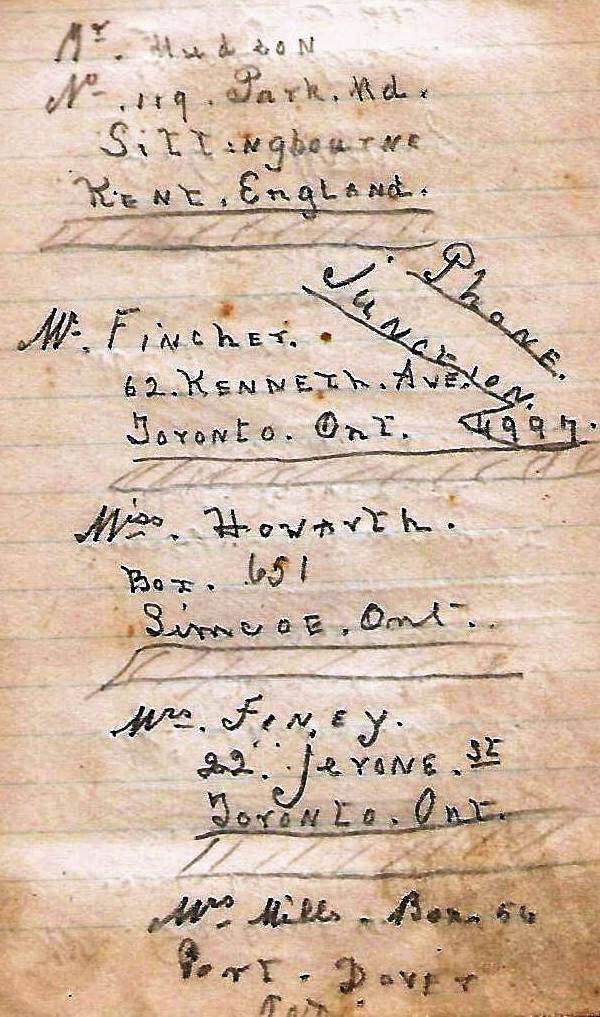 Mr. Hudson
No. 119. Park. Rd.
Sittingbourne
Kent. England.
Phone.
Junction.
4997.
Mr. Fincher.
62. Kenneth. Ave.
Toronto. Ont.
Miss. Howarth.
Box. 651
Simcoe. Ont.
Mrs. Finey.
22. Jerone. St
Toronto. Ont.
Mrs Mills. Box. 54
Port. Dover